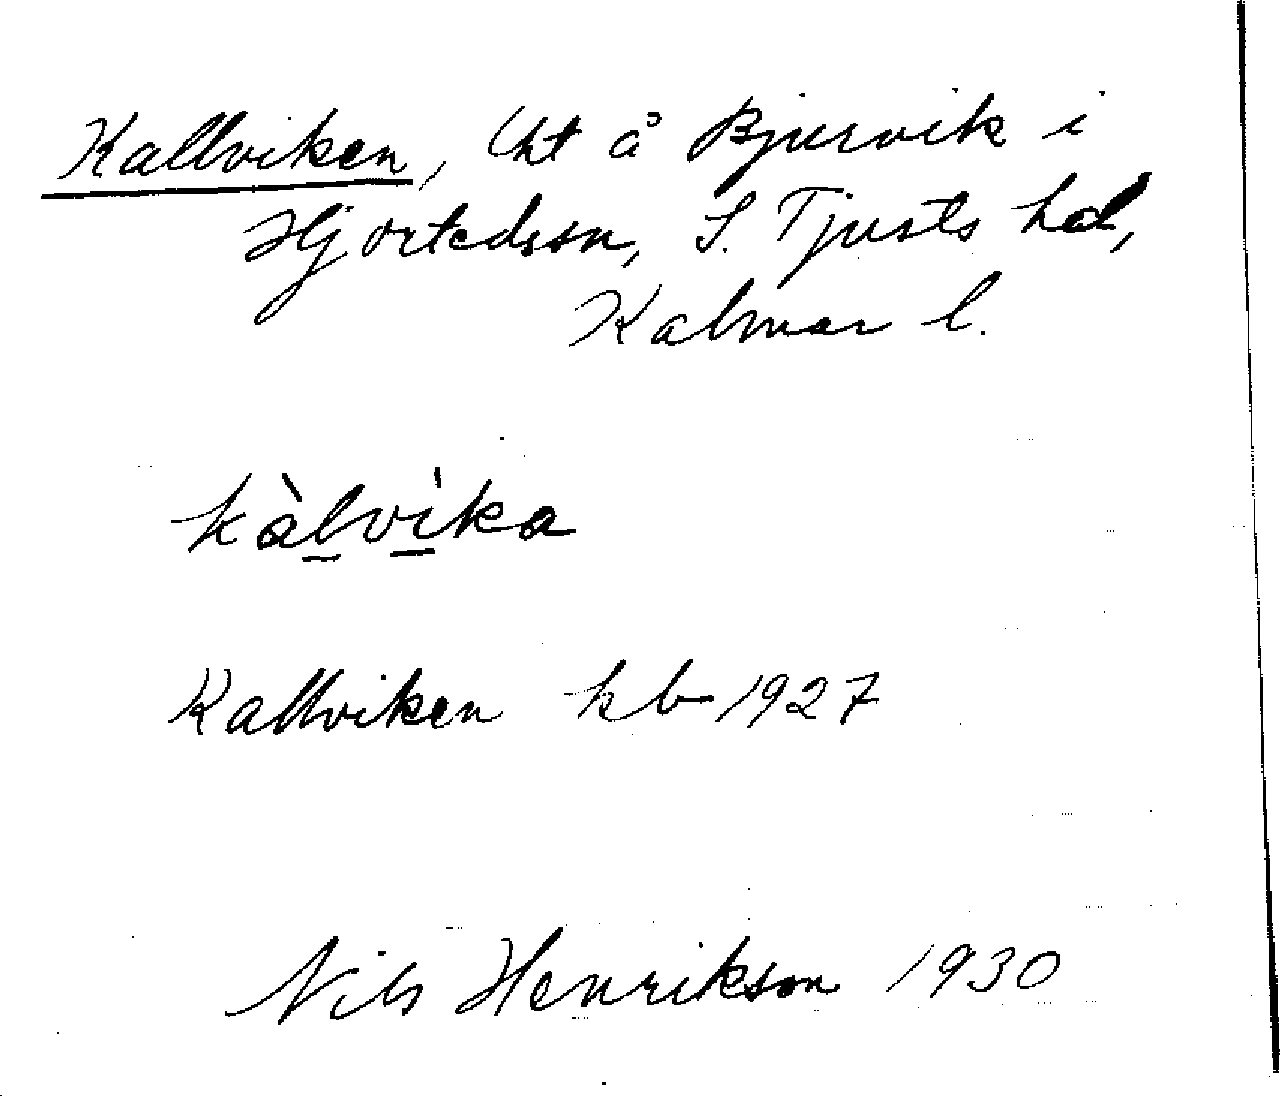 Kallviken, lht å Bjurvik i
Hjortedssn, S. Tjusts hd,
Kalmar l.
kàlvìka
Kallviken kb 1927
Nils Henrikson 1930